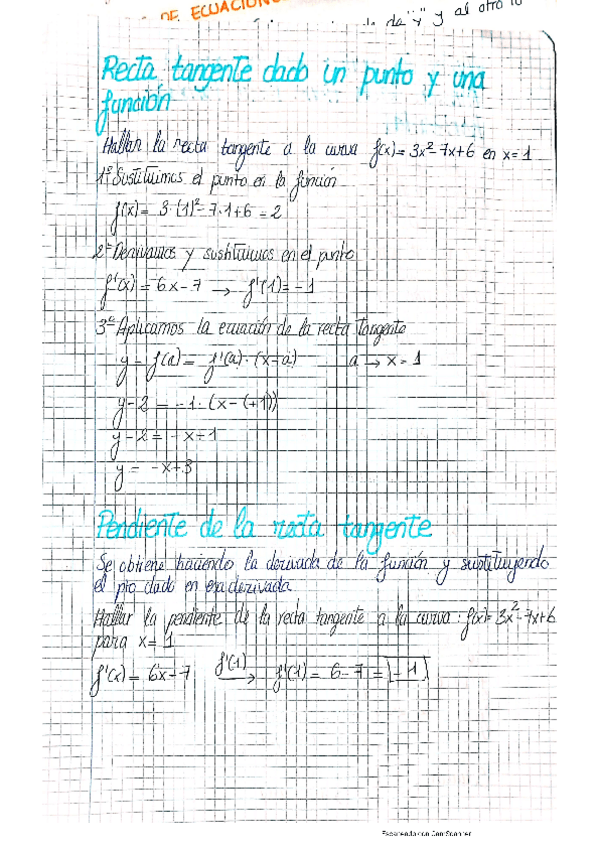 DE ECUACION
y al otro
Recta tangente dado un punto y una
función
Hallar la recta tangente a la curva f(x)=3x²-7x+6 en x=1
1º Sustituimos el punto en la función
f(x)= 3·(1)²-7·1+6=2
2º Derivamos y sustituimos en el punto
f'(x) = 6x-7 → f'(1)=-1
3º Aplicamos la ecuación de la recta tangente
y - f(a) = f'(a)·(x-a) a → x=1
y-2 = -1·(x-(+1))
y-2 = -x+1
y = -x+3
Pendiente de la recta tangente
Se obtiene haciendo la derivada de la función y sustituyendo
el pto dado en esa derivada.
Hallar la pendiente de la recta tangente a la curva: f(x)=3x²-7x+6
para x=1
f'(x) = 6x-7 f'(1) → f'(1) = 6-7 = -1
Escaneado con CamScanner